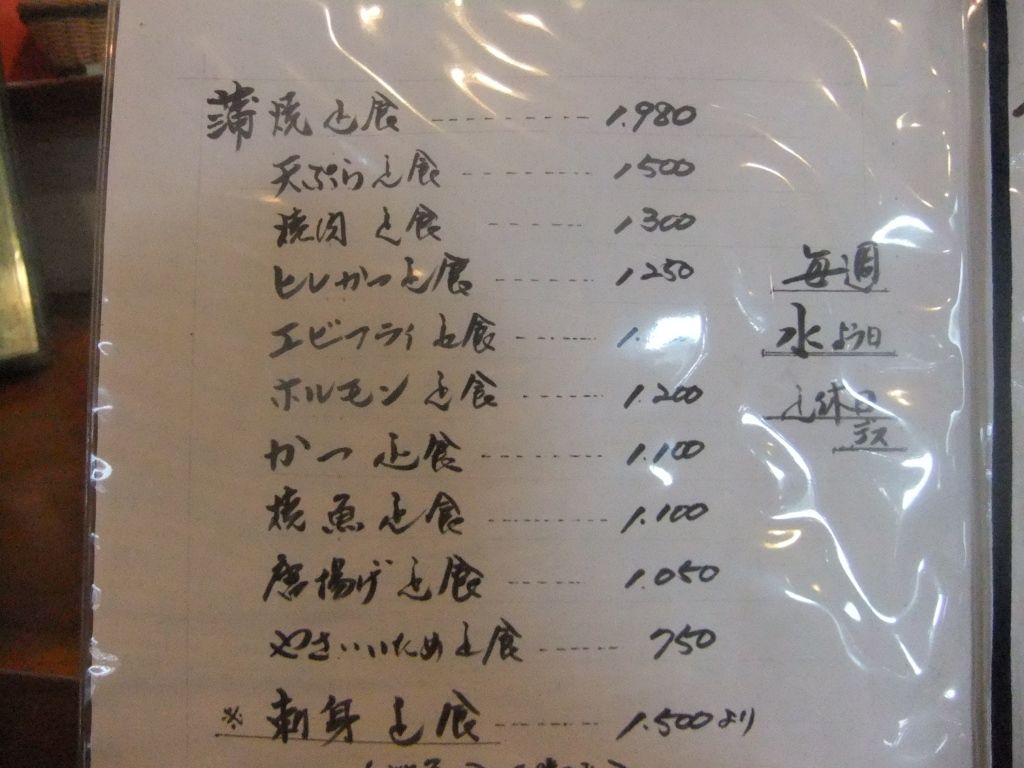 蒲焼定食 ---------- 1.980
天ぷら定食 -------- 1500
焼肉定食 -------- 1300
ヒレかつ定食 ------- 1250
エビフライ定食 ------
ホルモン定食 ------- 1.200
かつ定食 --------- 1.100
焼魚定食 --------- 1.100
唐揚げ定食 ------- 1.050
やさいいため定食 ----- 750
※刺身定食 -------- 1.500より
毎週
水よう日
定休日
デス